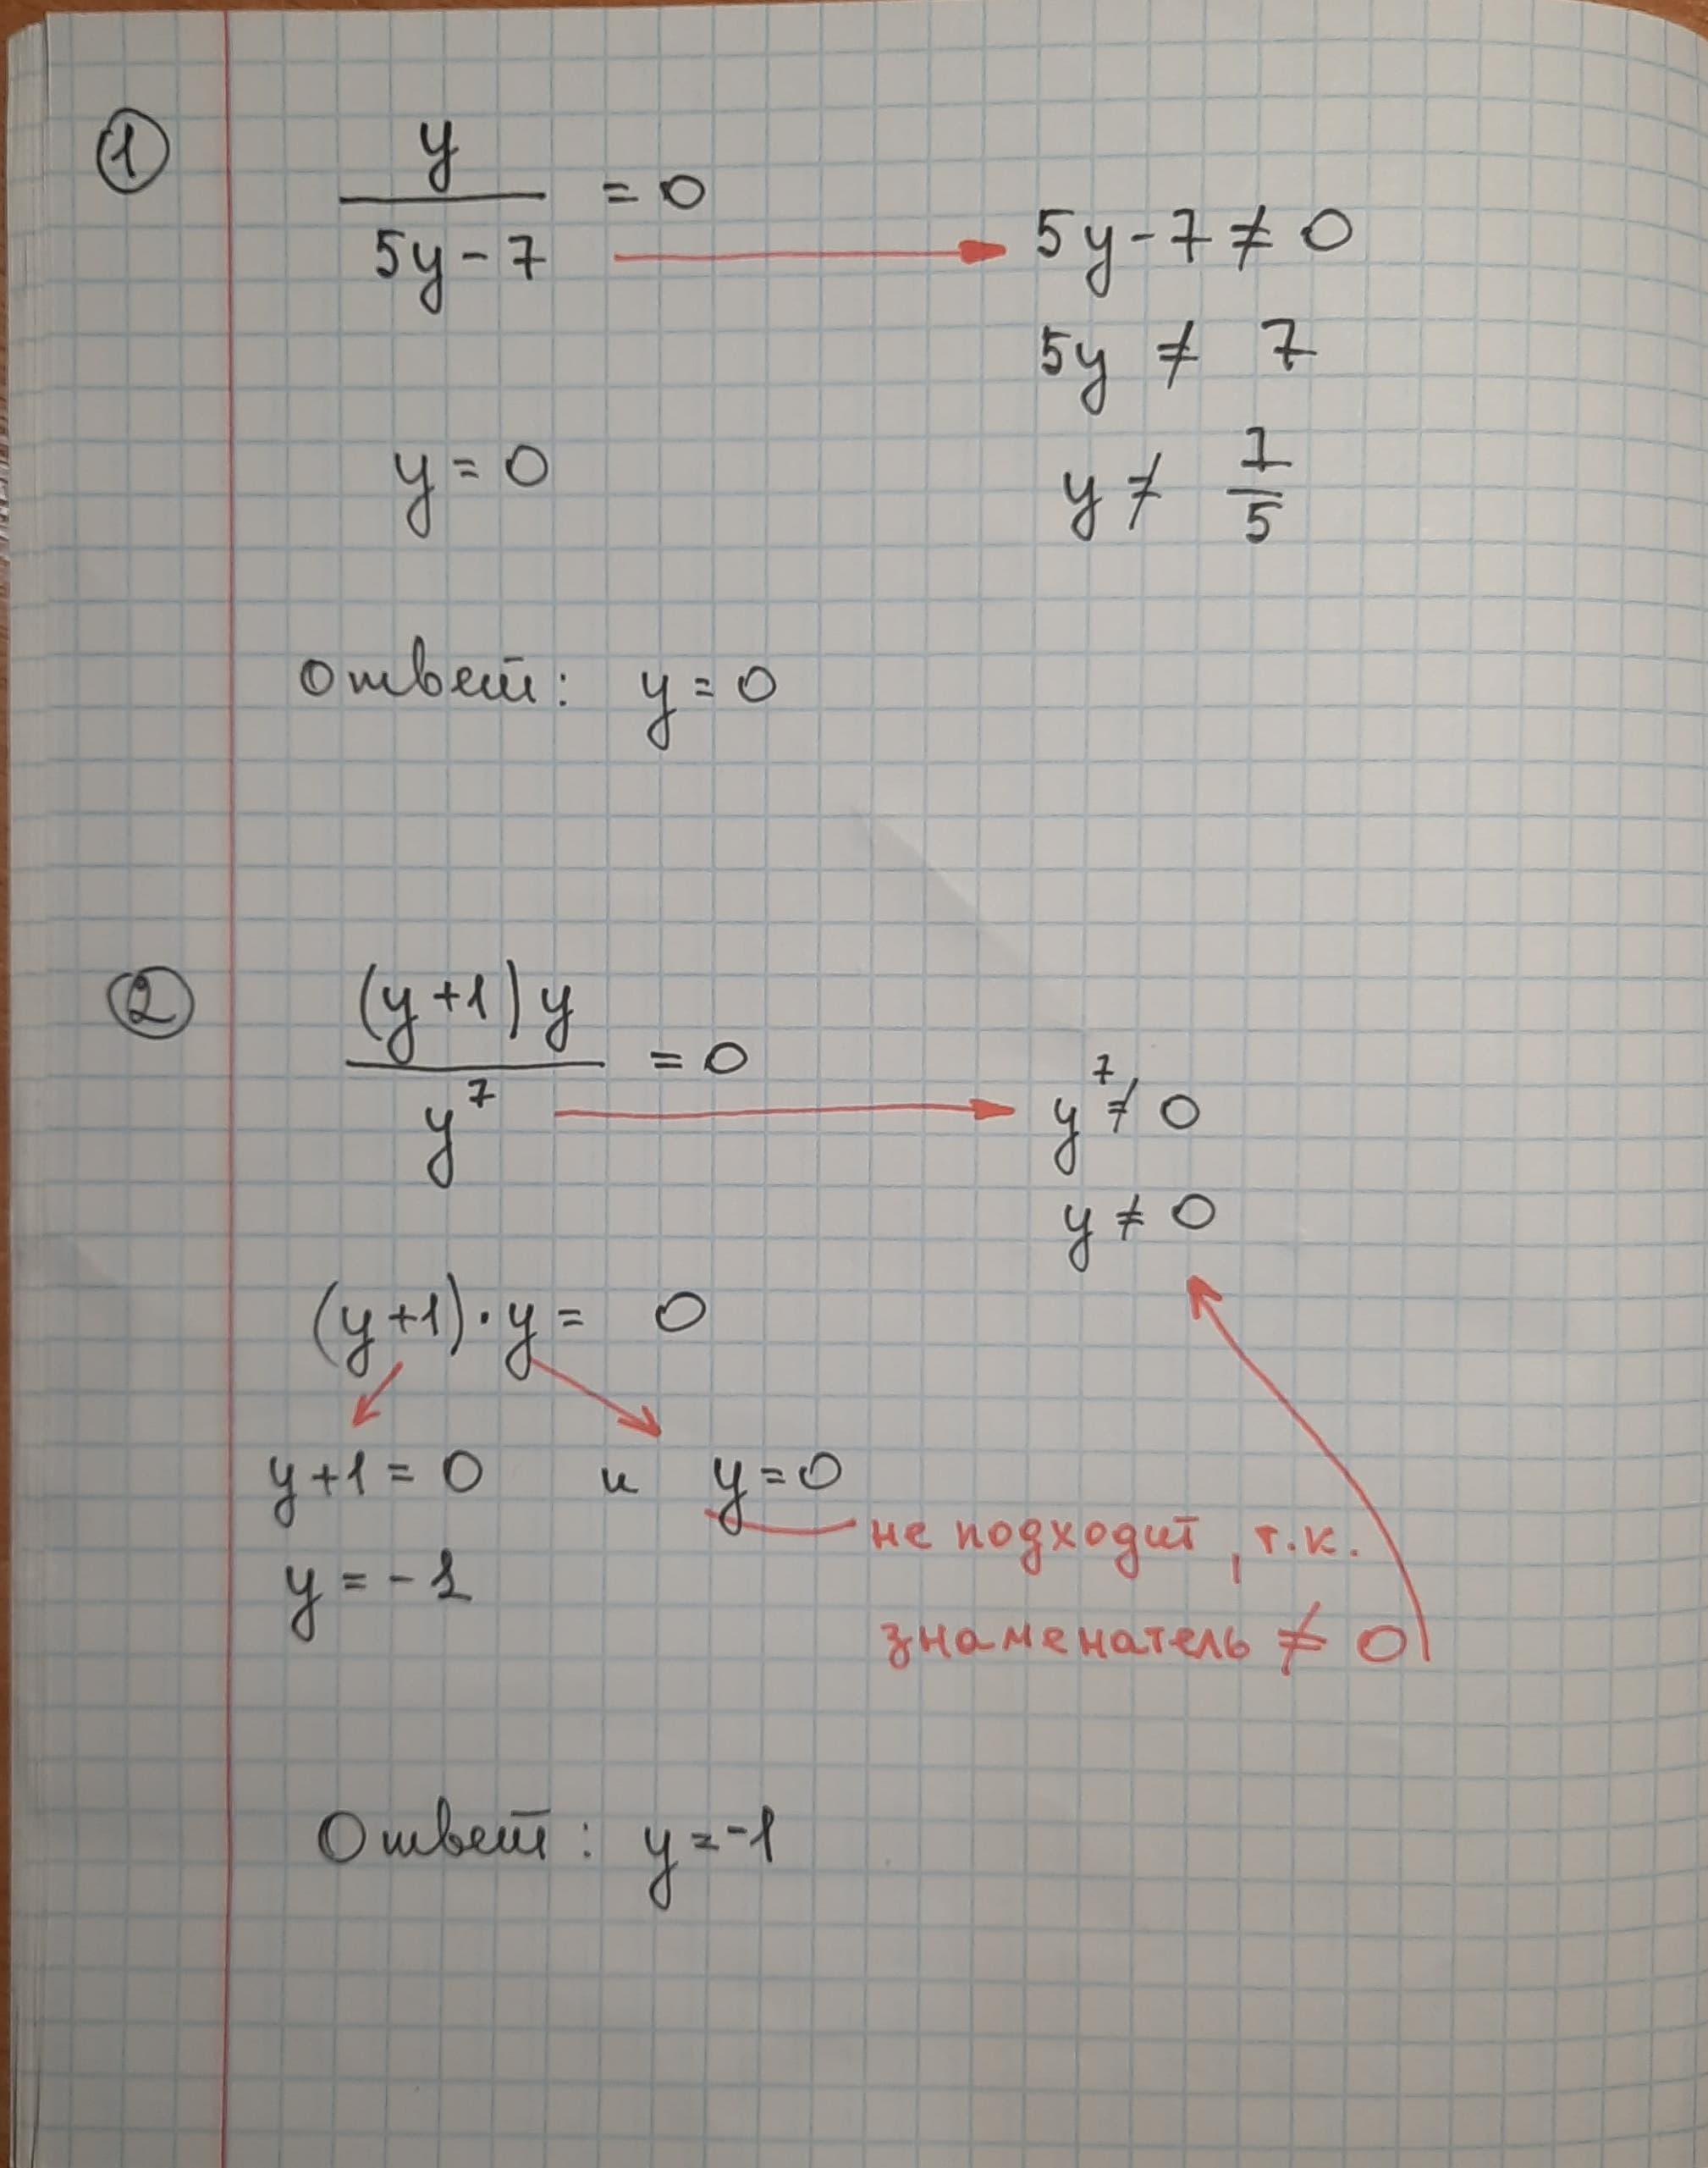 1
y / (5y - 7) = 0
5y - 7 ≠ 0
5y ≠ 7
y = 0
y ≠ 7/5
Ответ: y = 0
2
(y+1)y / y⁷ = 0
y⁷ ≠ 0
y ≠ 0
(y+1)·y = 0
y+1 = 0 и y = 0
не подходит, т.к.
y = -1
знаменатель ≠ 0
Ответ: y = -1